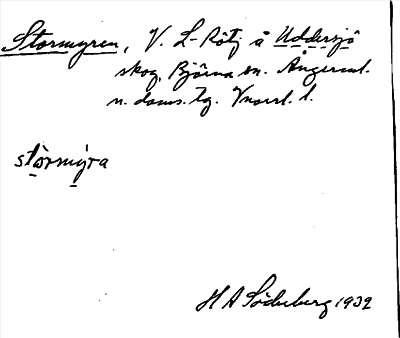 Stormyren, V. L-Rötj å Uddersjö
skog, Björna sn. Ångerml.
n. doms. tg. Vnorrl. l.
stòrmýra
H A Söderberg 1932